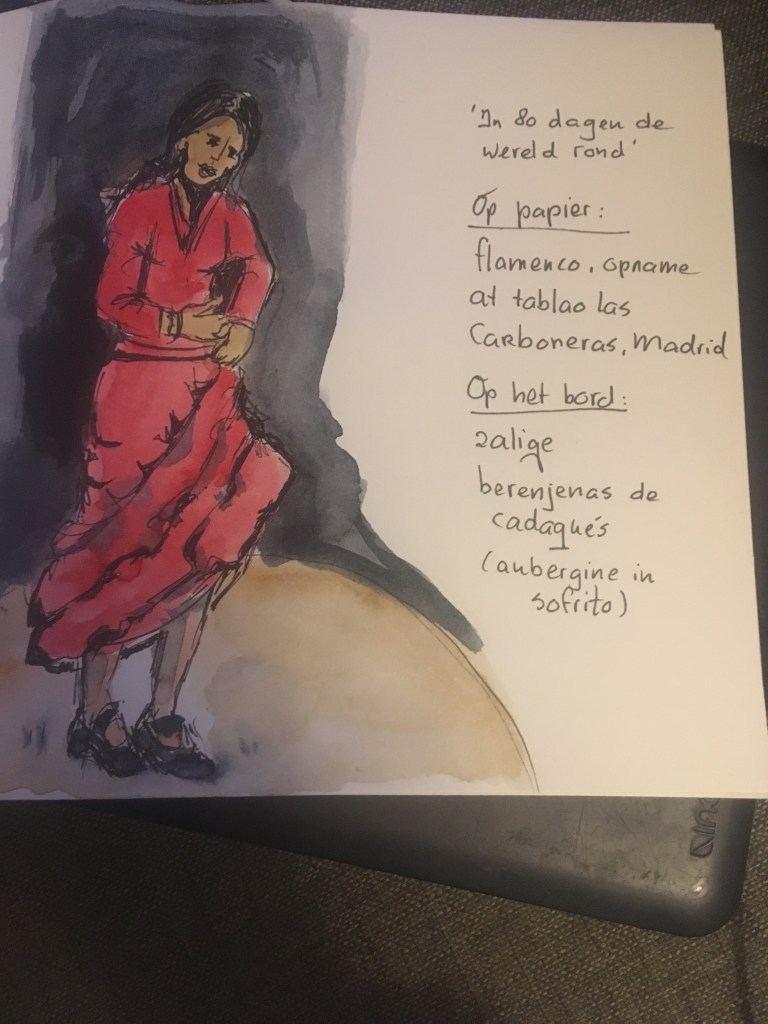 'In 80 dagen de
wereld rond'
Op papier:
flamenco, opname
at tablao las
Carboneras, Madrid
Op het bord:
zalige
berenjenas de
cadaqués
(aubergine in
sofrito)